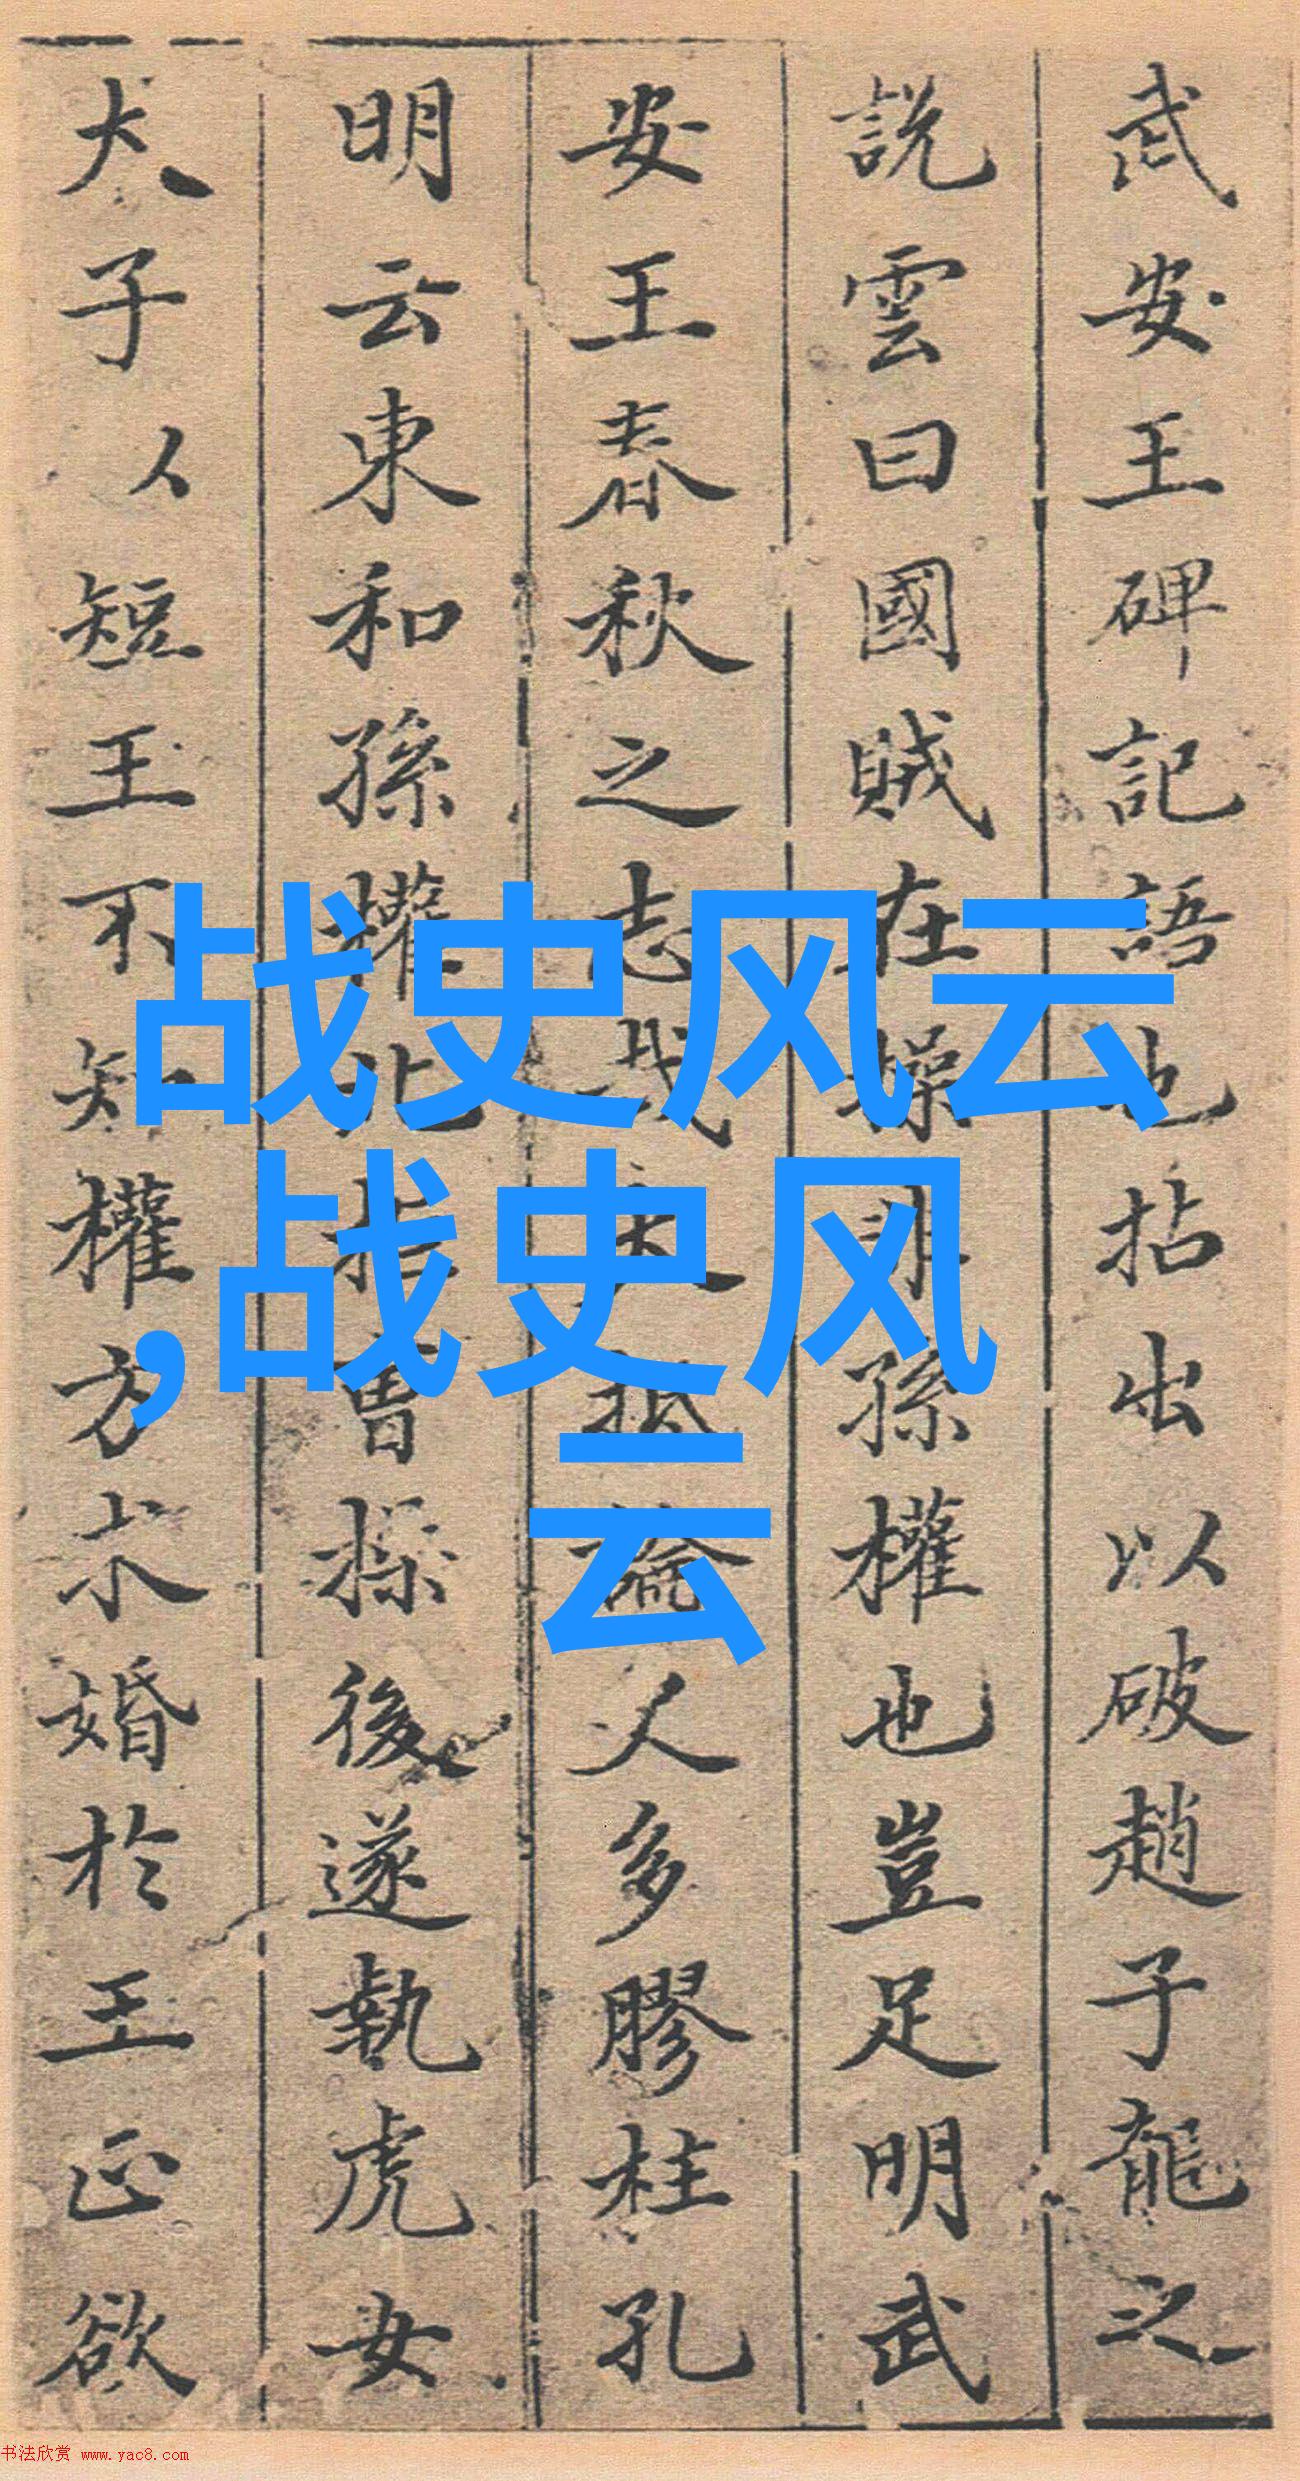 武安王碑記語也拈出以破趙子龍之
說雲曰國賊在操非孫權也豈足明武
安王春秋之志哉人多膠柱孔
明云東和孫權北拒曹操後遂執虎女
犬子以短王不知權方求婚於王正欲
战史风云
,战史风
云
书法欣赏 www.yac8.com